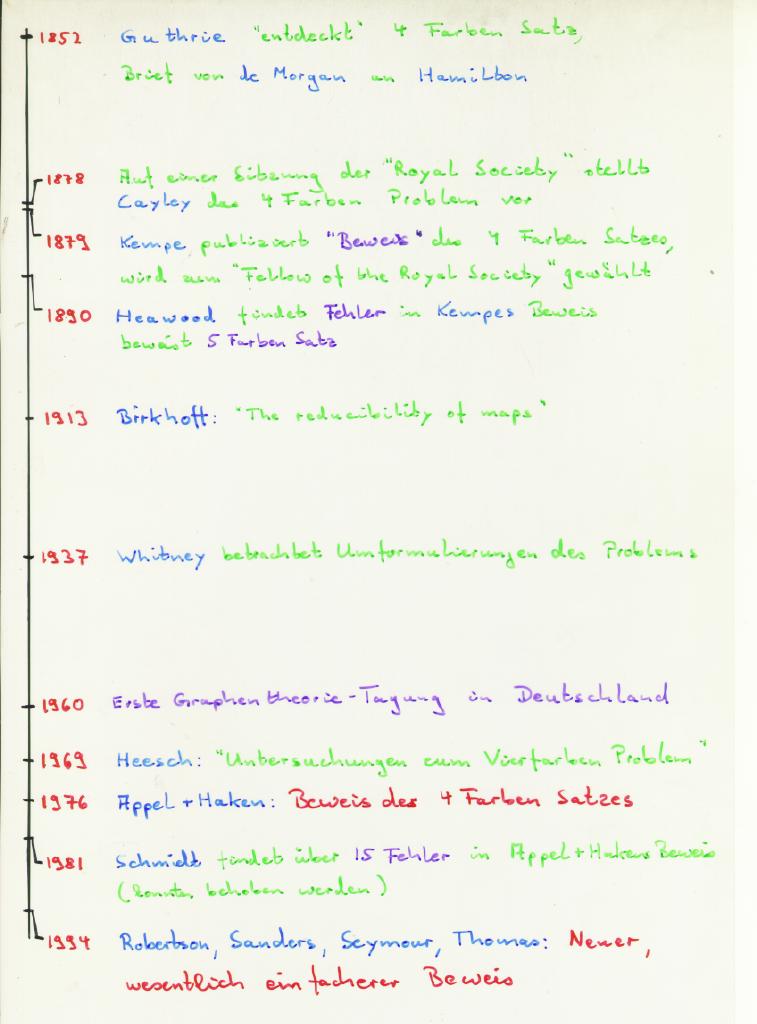 1852 Guthrie "entdeckt" 4 Farben Satz,
Brief von de Morgan an Hamilton
1878 Auf einer Sitzung der "Royal Society" stellt
Cayley das 4 Farben Problem vor
1879 Kempe publiziert "Beweis" des 4 Farben Satzes,
wird zum "Fellow of the Royal Society" gewählt
1890 Heawood findet Fehler in Kempes Beweis
beweist 5 Farben Satz
1913 Birkhoff: "The reducibility of maps"
1937 Whitney betrachtet Umformulierungen des Problems
1960 Erste Graphentheorie-Tagung in Deutschland
1969 Heesch: "Untersuchungen zum Vierfarben Problem"
1976 Appel + Haken: Beweis des 4 Farben Satzes
1981 Schmidt findet über 15 Fehler in Appel + Hakens Beweis
(konnten behoben werden)
1994 Robertson, Sanders, Seymour, Thomas: Neuer,
wesentlich einfacherer Beweis